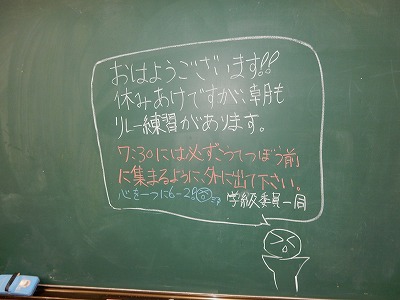 おはようございます!!
休みあけですが、朝も
リレー練習があります。
7:30には必ずこうてつぼう前
に集まるように、外に出て下さい。
心を一つに6-2 学級委員一同